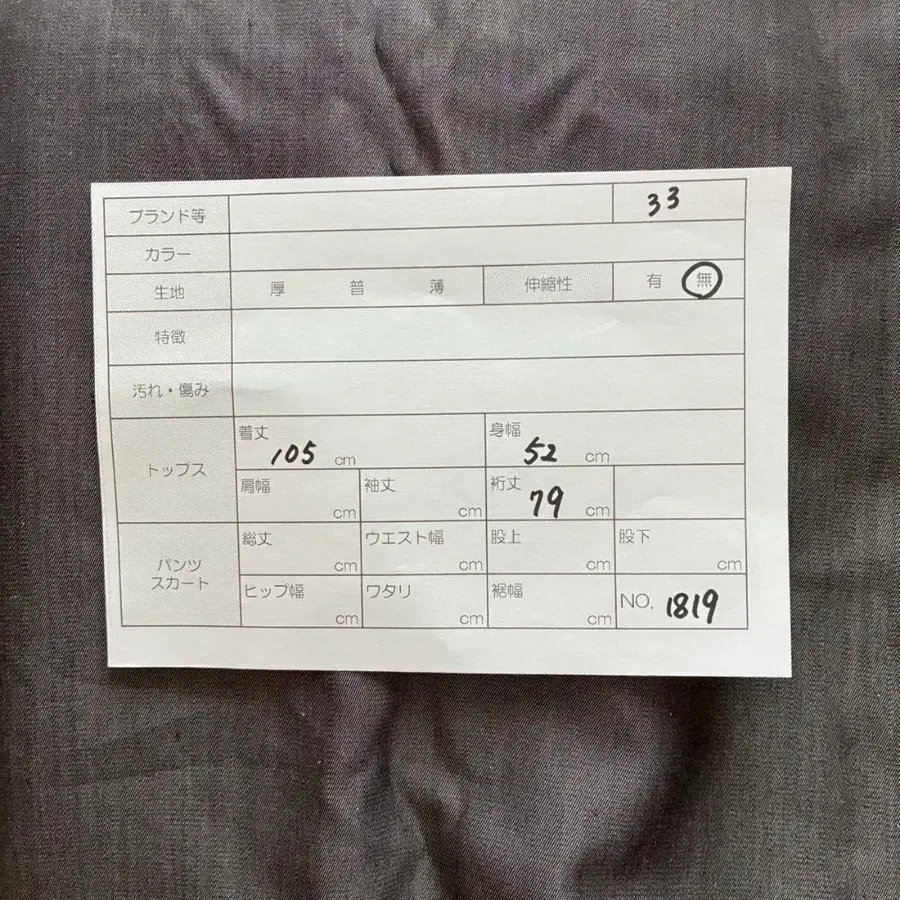 ブランド等 33
カラー
生地 厚 普 薄 伸縮性 有 無
特徴
汚れ・傷み
トップス
着丈 105 cm 身幅 52 cm
肩幅 cm 袖丈 cm 裄丈 79 cm
パンツ
スカート
総丈 cm ウエスト幅 cm 股上 cm 股下 cm
ヒップ幅 cm ワタリ cm 裾幅 cm NO. 1819